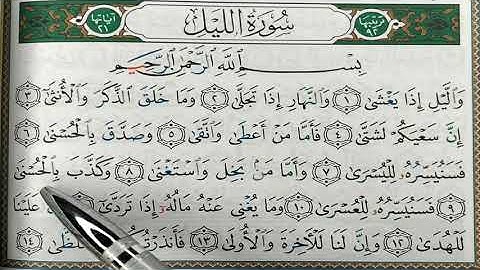 ترتيبها ٩٢ سُورَةُ اللَّيْلِ آياتها ٢١
بِسْمِ اللَّهِ الرَّحْمَٰنِ الرَّحِيمِ
وَاللَّيْلِ إِذَا يَغْشَىٰ ١ وَالنَّهَارِ إِذَا تَجَلَّىٰ ٢ وَمَا خَلَقَ الذَّكَرَ وَالْأُنثَىٰ ٣
إِنَّ سَعْيَكُمْ لَشَتَّىٰ ٤ فَأَمَّا مَنْ أَعْطَىٰ وَاتَّقَىٰ ٥ وَصَدَّقَ بِالْحُسْنَىٰ ٦
فَسَنُيَسِّرُهُ لِلْيُسْرَىٰ ٧ وَأَمَّا مَنْ بَخِلَ وَاسْتَغْنَىٰ ٨ وَكَذَّبَ بِالْحُسْنَىٰ
٩ فَسَنُيَسِّرُهُ لِلْعُسْرَىٰ ١٠ وَمَا يُغْنِي عَنْهُ مَالُهُ إِذَا تَرَدَّىٰ عَلَيْنَا
لَلْهُدَىٰ ١٢ وَإِنَّ لَنَا لَلْآخِرَةَ وَالْأُولَىٰ ١٣ فَأَنذَرْتُكُمْ تَلَظَّىٰ ١٤